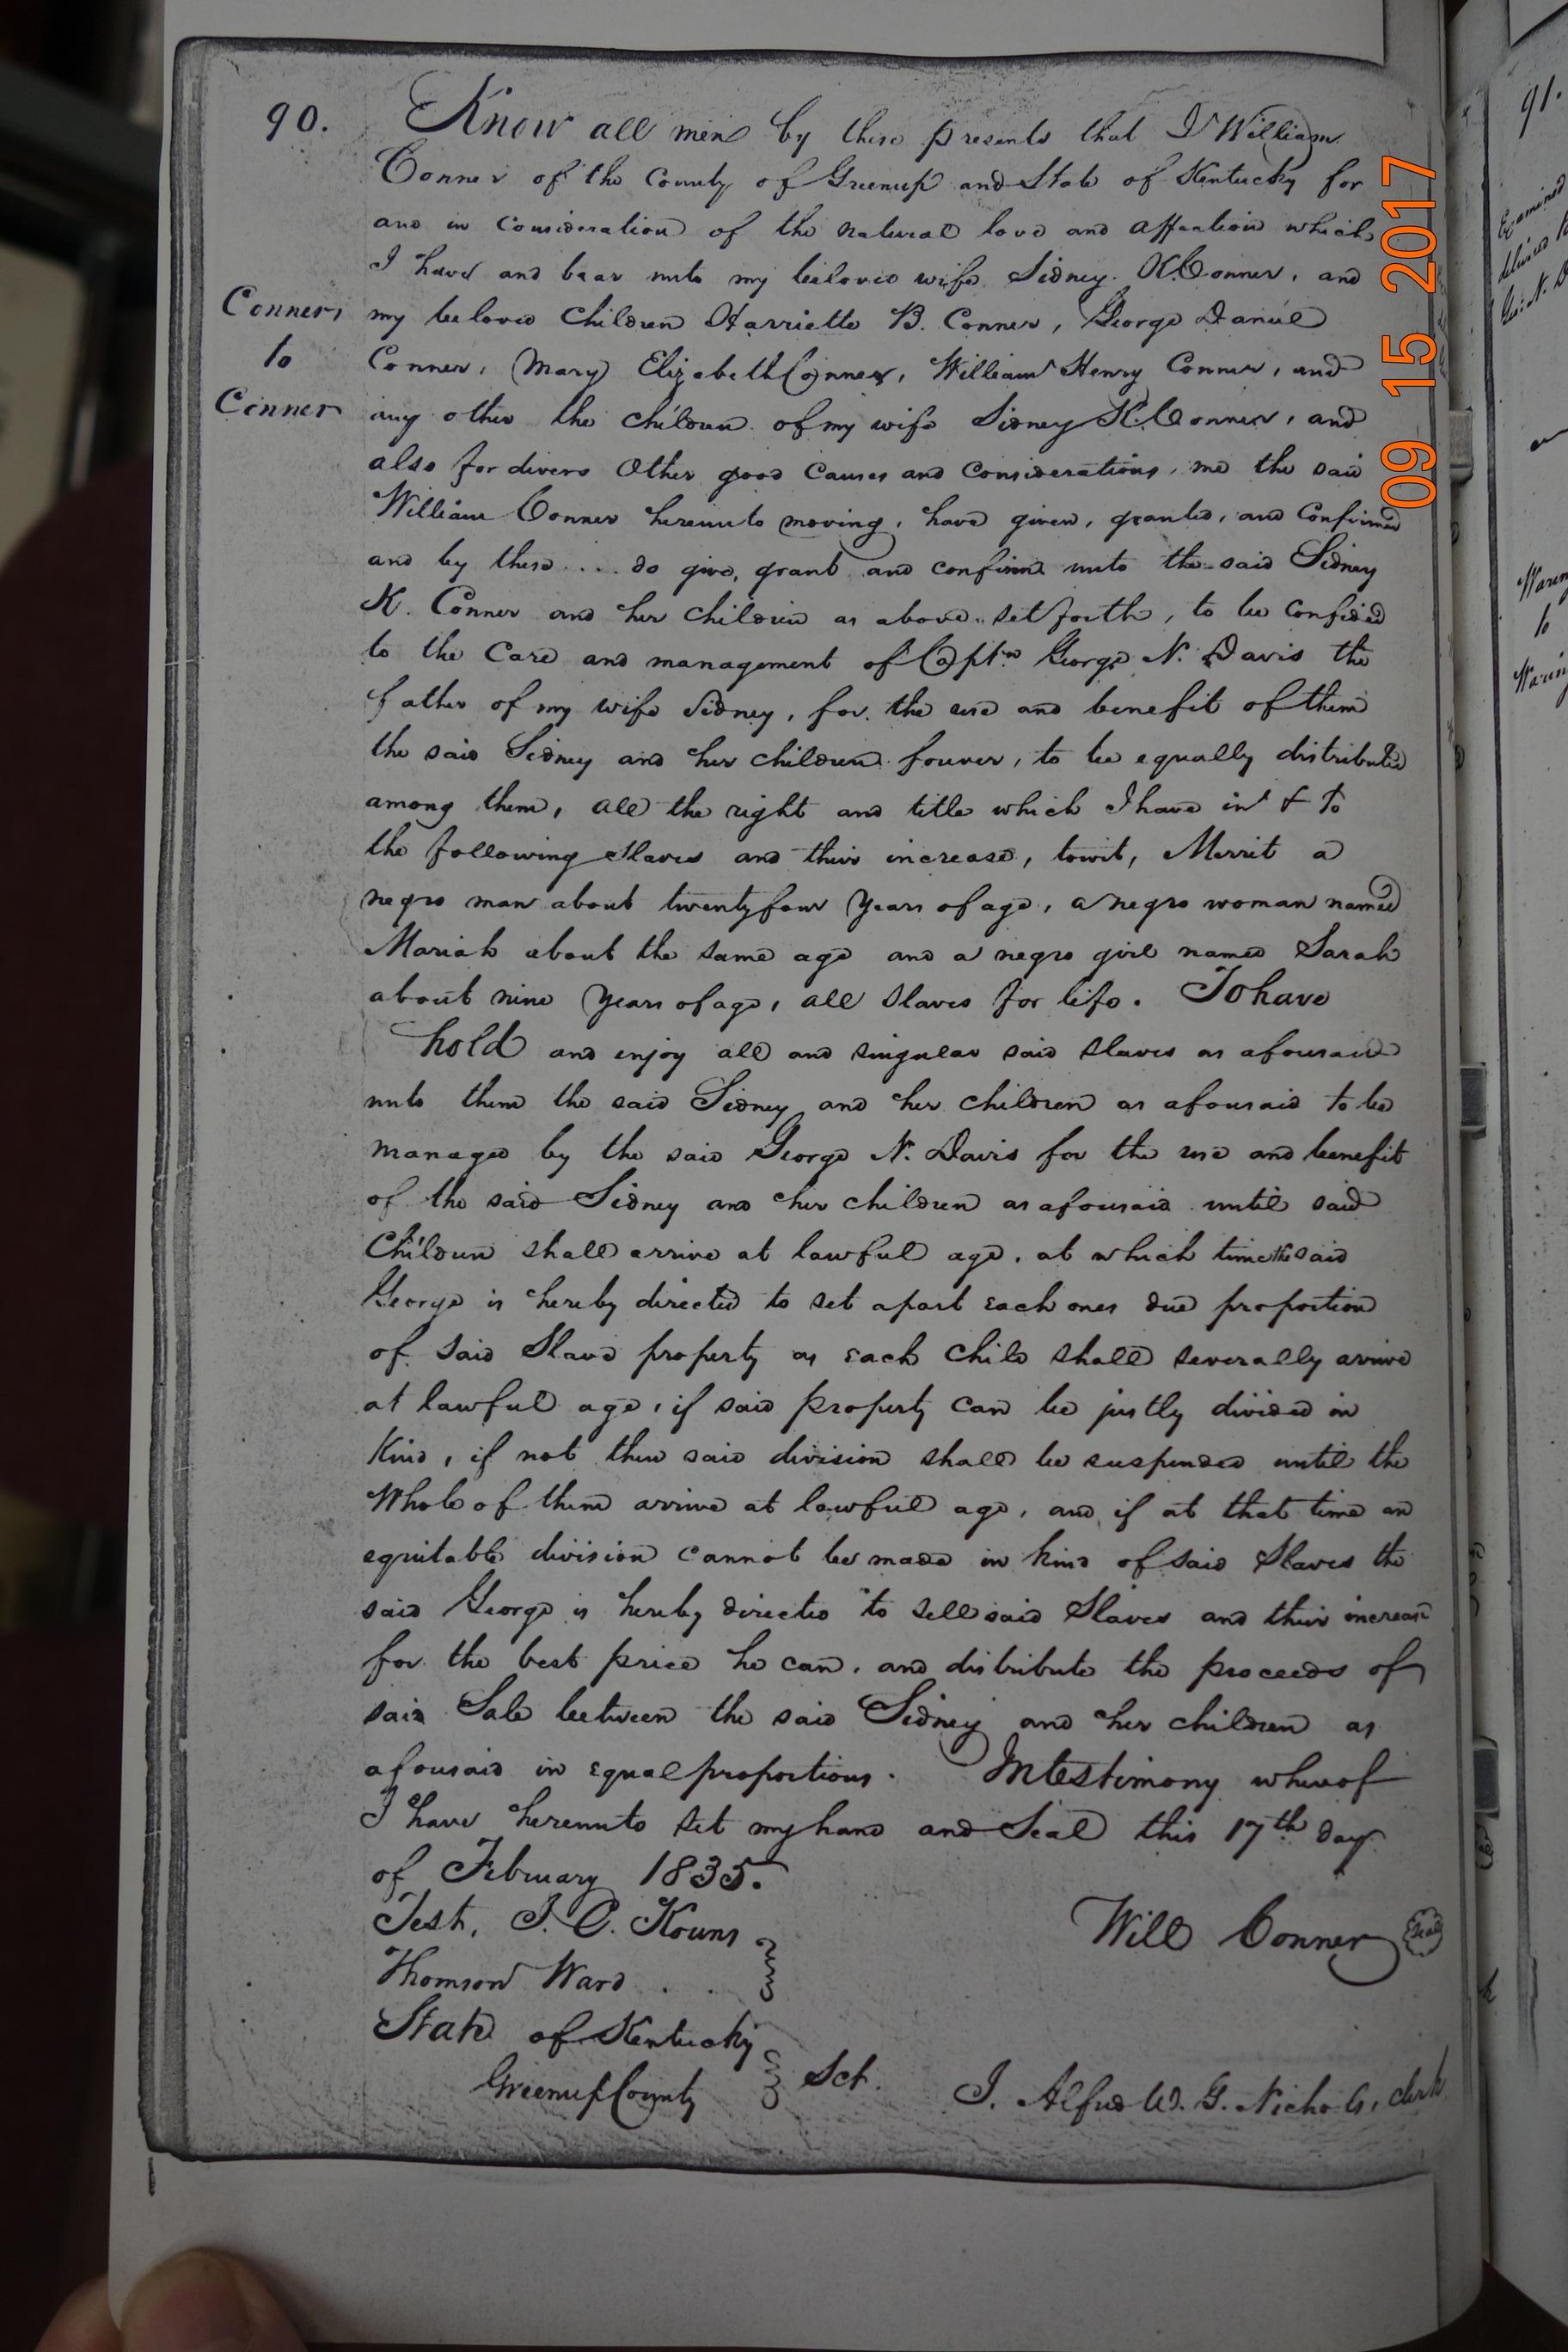 90.
Know all men by these presents that I William
Conner of the County of Greenup and State of Kentucky for
and in Consideration of the natural love and affection which
I have and bear unto my beloved wife Sidney K. Conner, and
Conner,
my beloved Children Harriette B. Conner, George Daniel
to
Conner, Mary Elizabeth Conner, William Henry Conner, and
Conner
any other the children of my wife Sidney K. Conner, and
also for divers Other good Causes and Considerations, me the said
William Conner hereunto moving, have given, granted, and Confirmed
and by these .... do give, grant and confirm unto the said Sidney
K. Conner and her children as above set forth, to be Confided
to the Care and management of Captn George N. Davis the
father of my wife Sidney, for the use and benefit of them
the said Sidney and her children forever, to be equally distributed
among them, all the right and title which I have in & to
the following Slaves and their increase, towit, Merrit a
negro man about twenty four Years of age, a negro woman named
Mariah about the same age and a negro girl named Sarah
about nine Years of age, all Slaves for life. To have
hold and enjoy all and singular said slaves as aforesaid
unto them the said Sidney and her children as aforesaid to be
managed by the said George N. Davis for the use and benefit
of the said Sidney and her children as aforesaid until said
Children shall arrive at lawful age, at which time the said
George is hereby directed to set apart each ones due proportion
of said Slave property as each Child shall severally arrive
at lawful age, if said property can be justly divided in
Kind, if not then said division shall be suspended until the
Whole of them arrive at lawful age, and if at that time an
equitable division cannot be made in kind of said Slaves the
said George is hereby directed to sell said Slaves and their increase
for the best price he can, and distribute the proceeds of
said Sale between the said Sidney and her children as
aforesaid in equal proportions. In testimony whereof
I have hereunto set my hand and Seal this 17th day
of February 1835.
Test, J. C. Kouns
Will Conner Seal
Thomson Ward . .
State of Kentucky
Greenup County
Sct.
I. Alfred W. G. Nichols, clerk
09 15 2017
91.
Examined
to